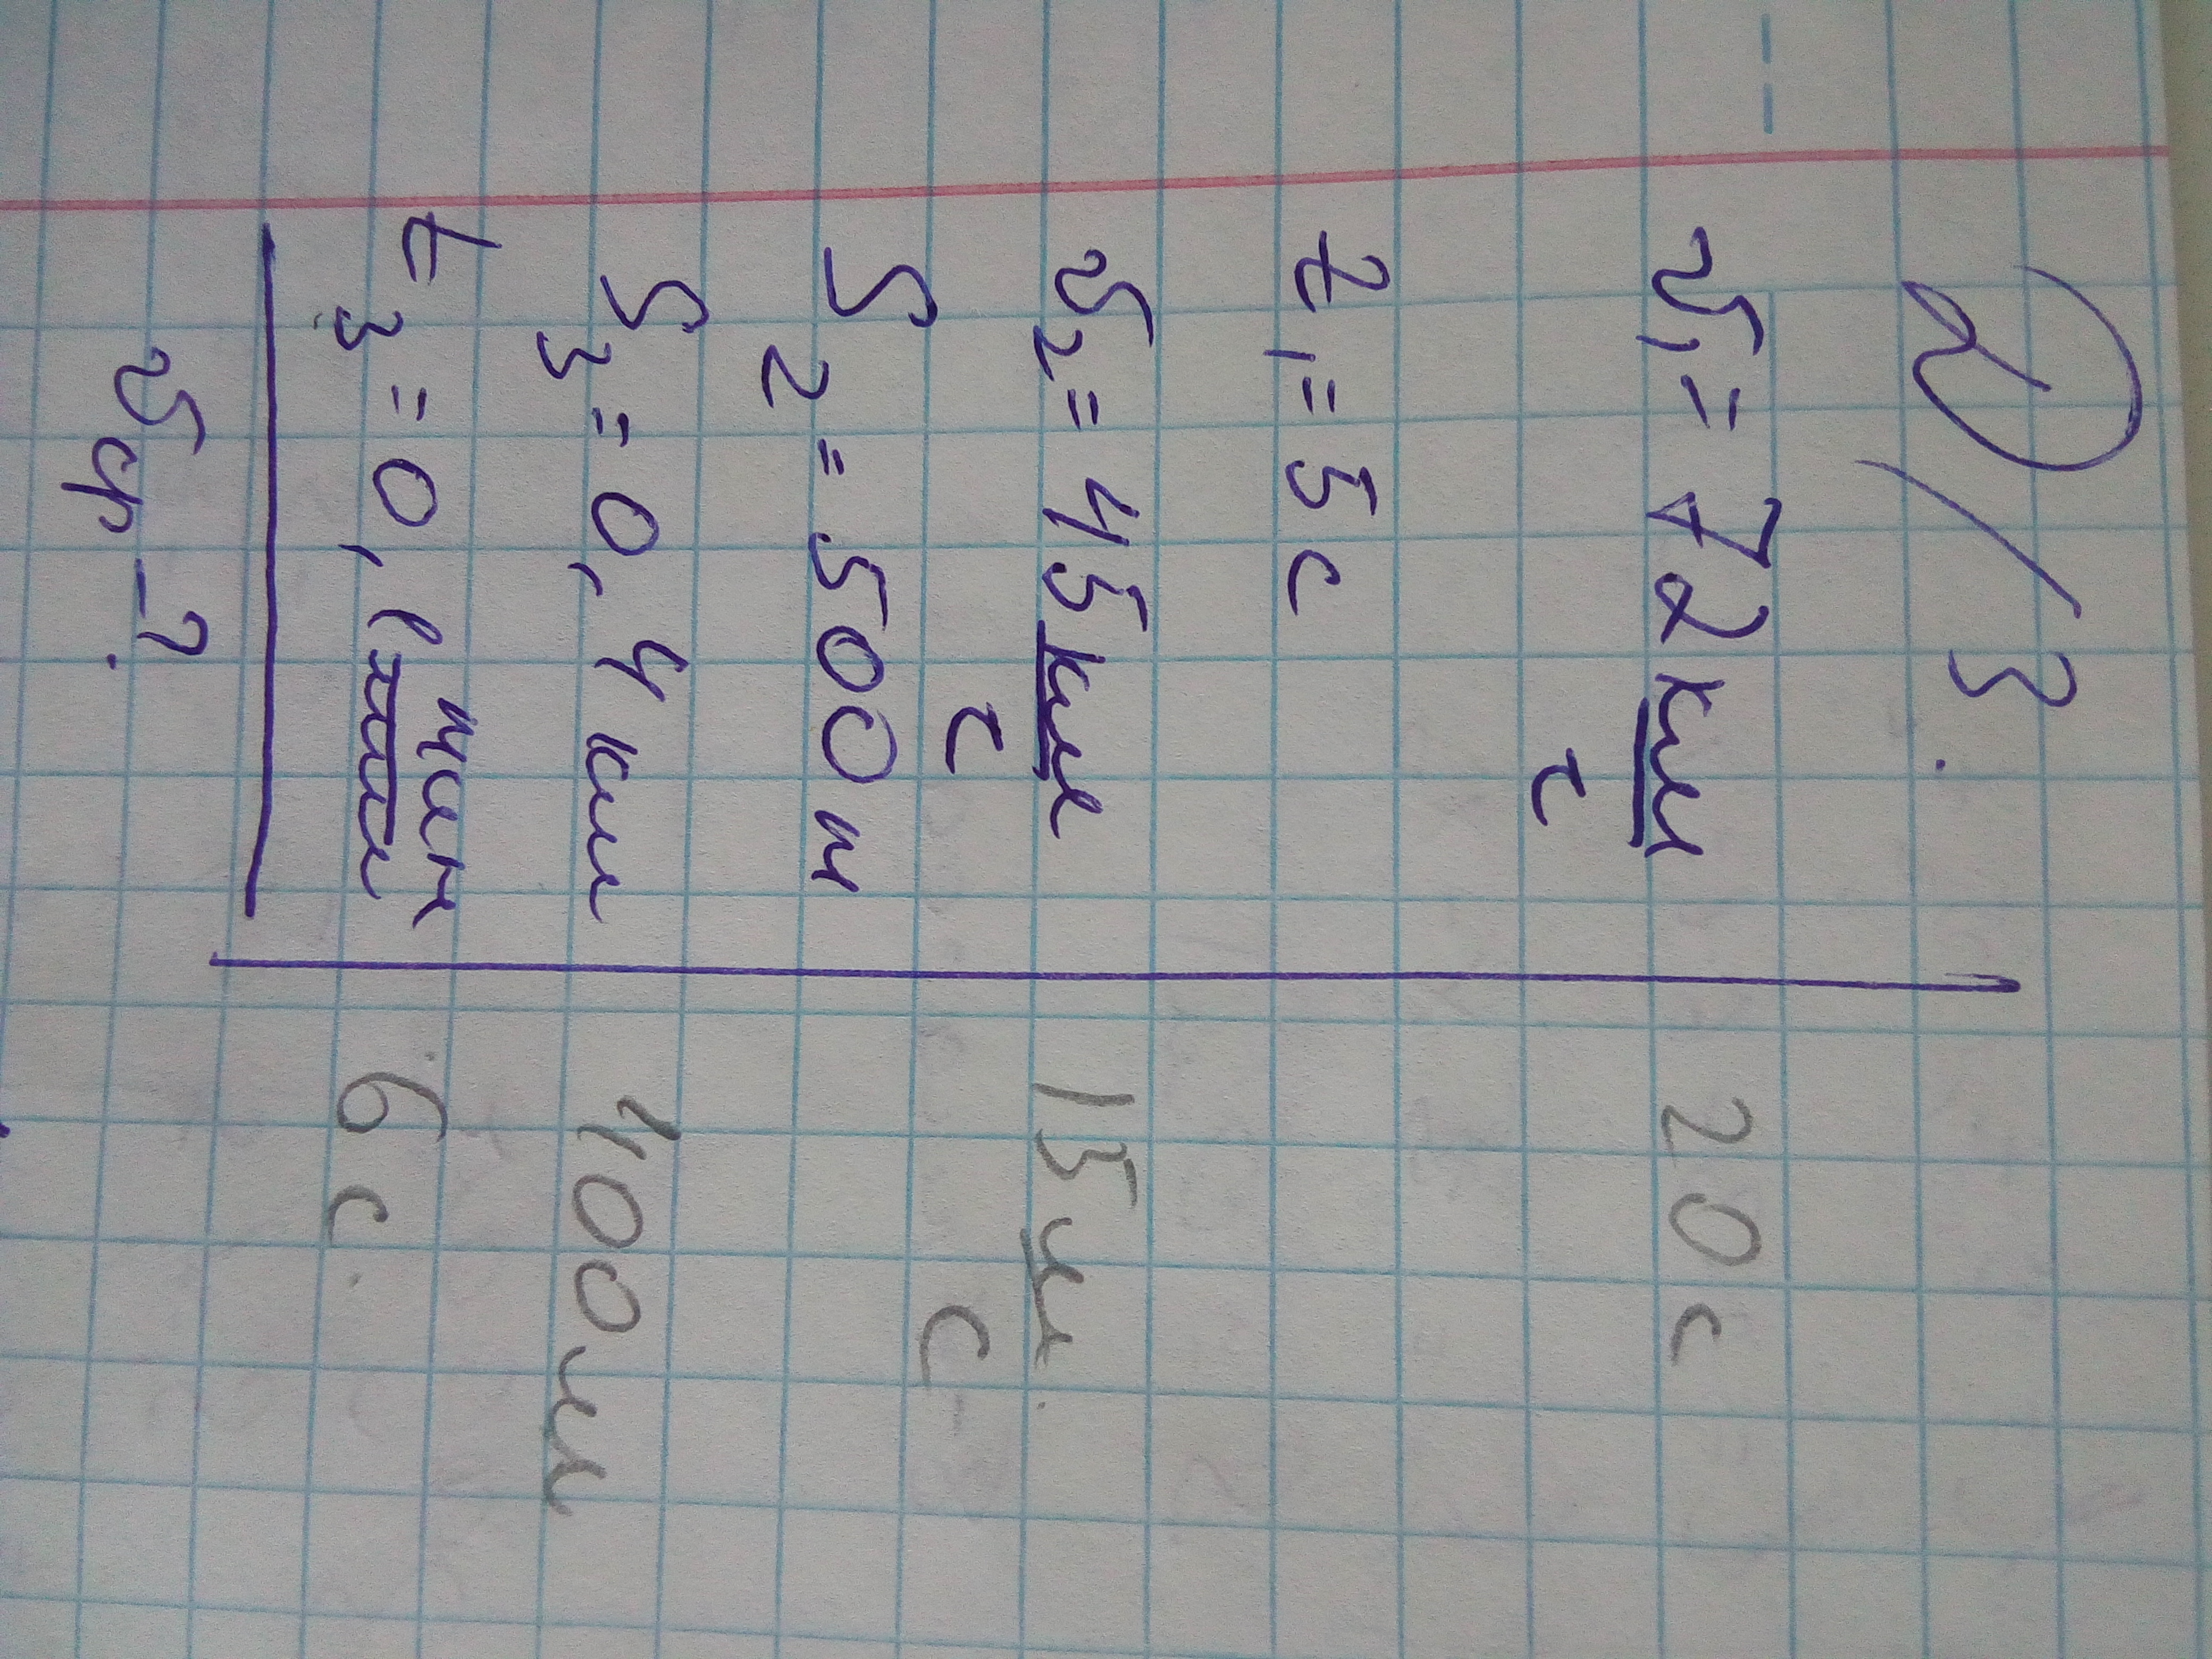 Д/З.
v₁ = 72 км/ч 20 с
t₁ = 5 с
v₂ = 45 км/ч 15 м/с
S₂ = 500 м
S₃ = 0,4 км 400 м
t₃ = 0,1 мин 6 с.
vср - ?